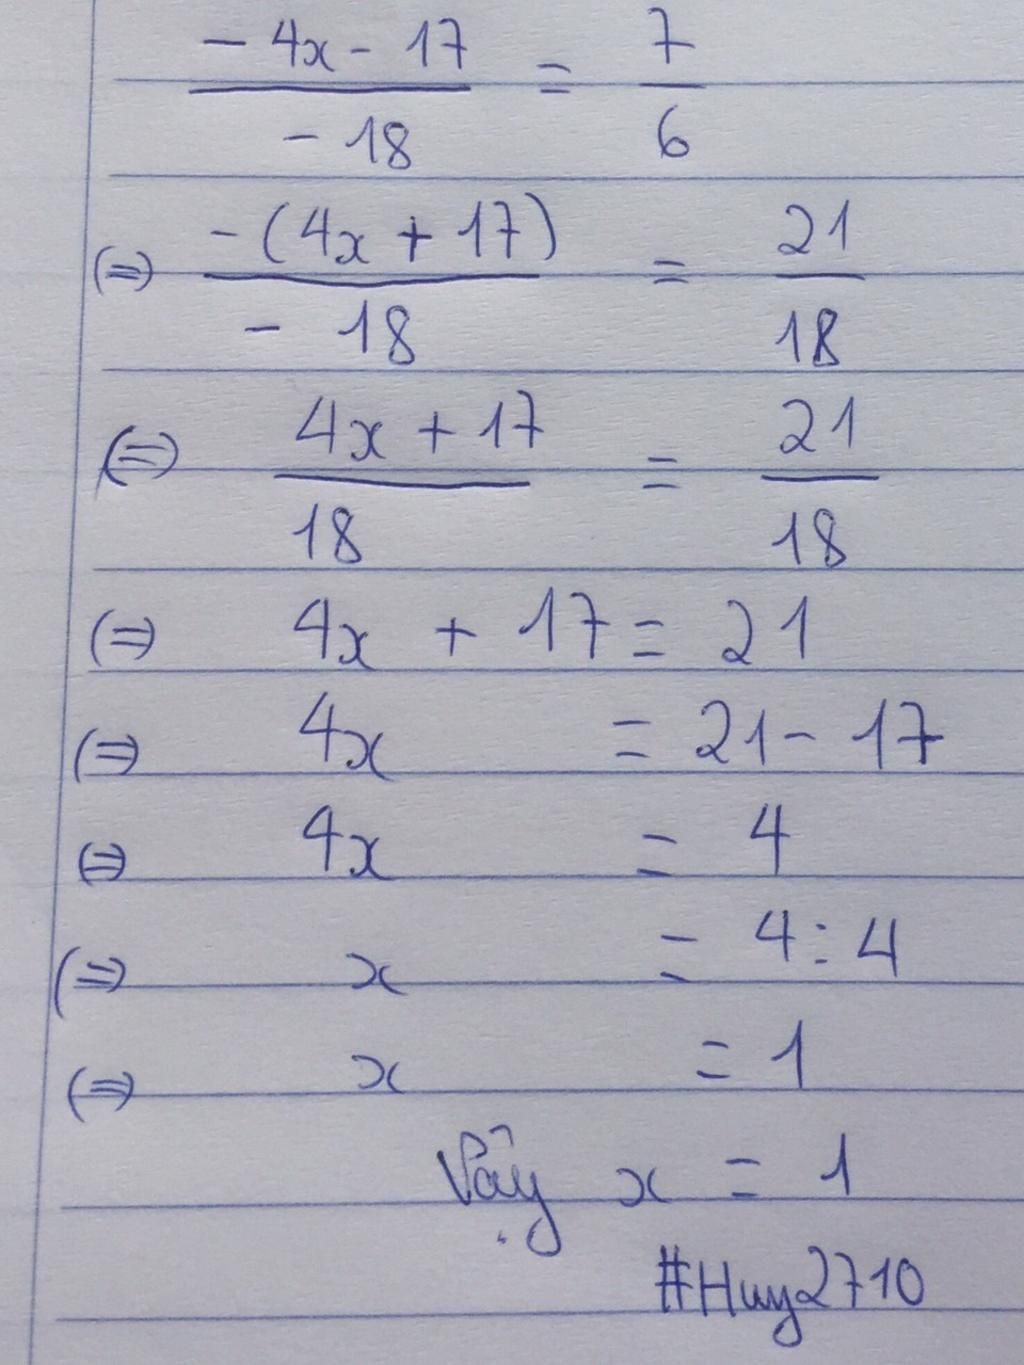 (-4x - 17)/(-18) = 7/6
(=>) (-(4x + 17))/(-18) = 21/18
(=>) (4x + 17)/18 = 21/18
(=>) 4x + 17 = 21
(=>) 4x = 21 - 17
(=>) 4x = 4
(=>) x = 4 : 4
(=>) x = 1
Vậy x = 1
#Huy2710